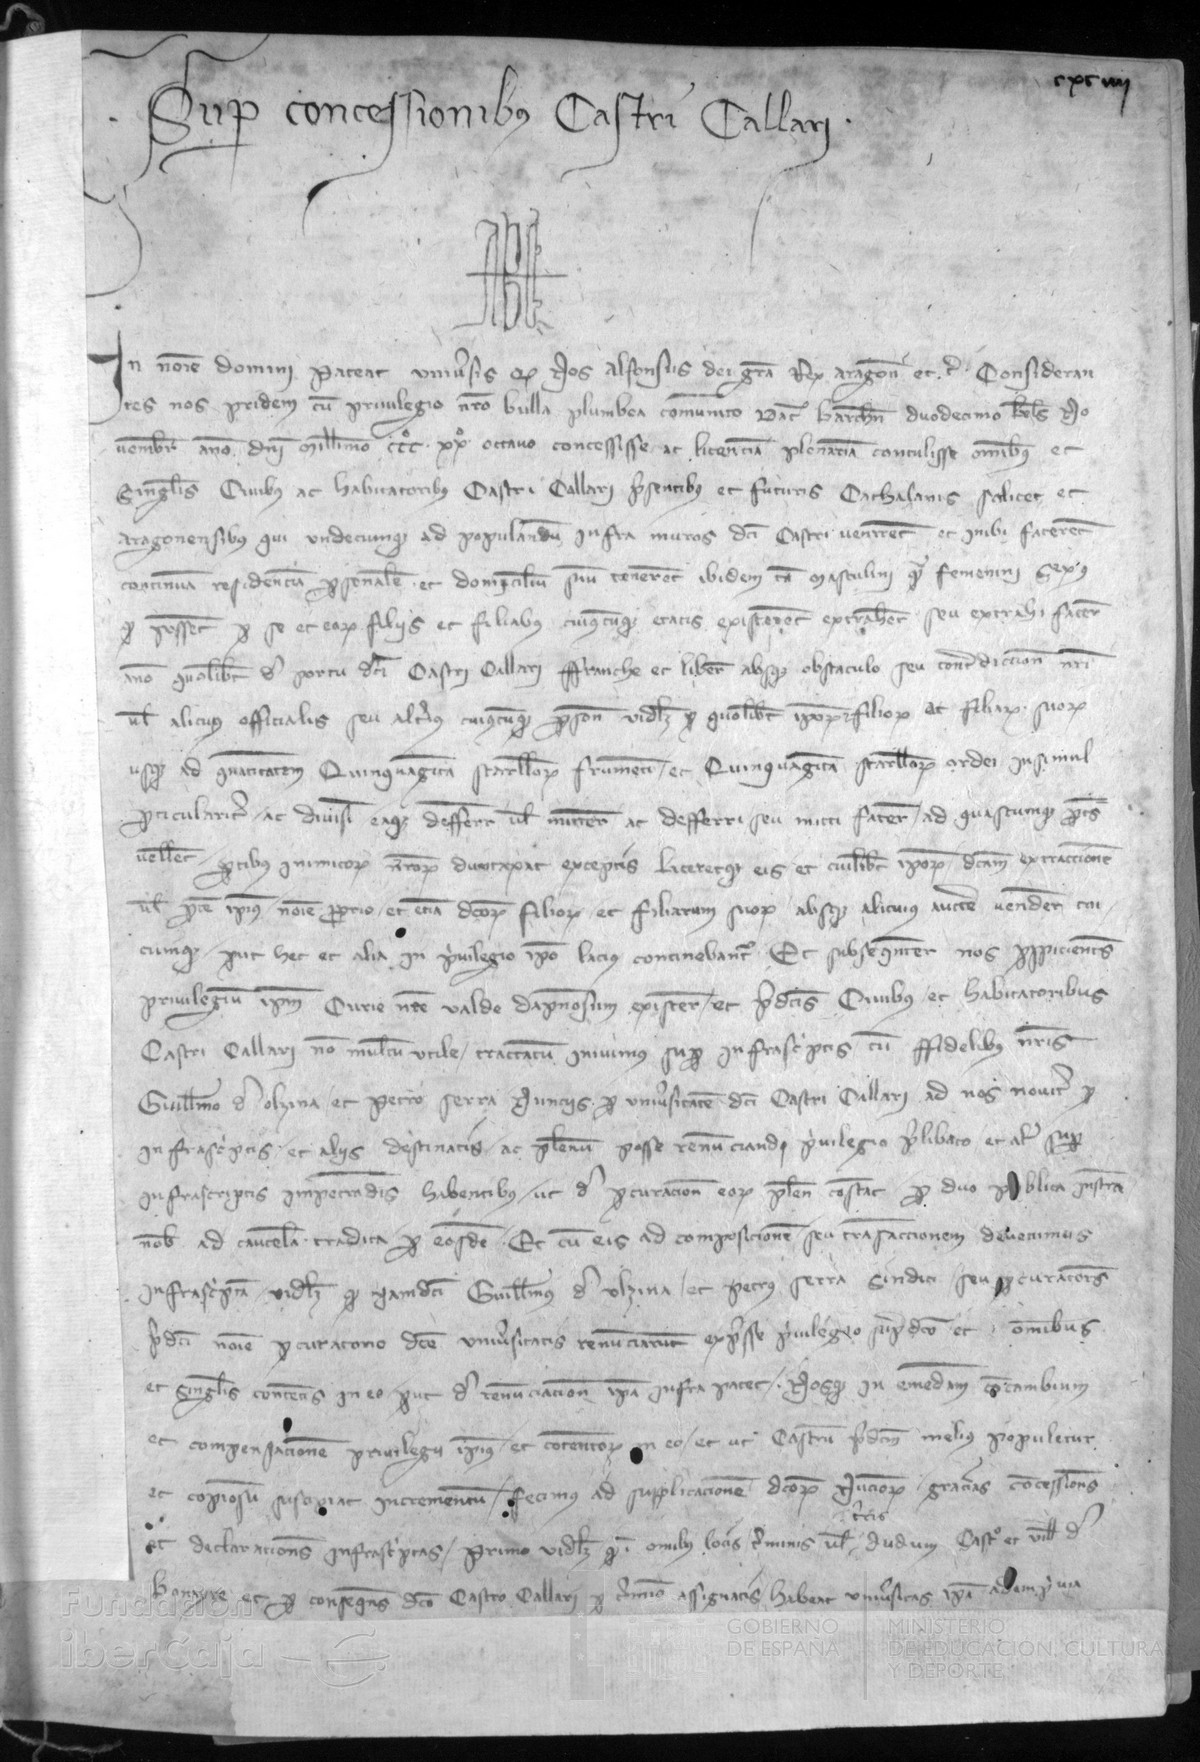 cxciiij
Sup concessionibus Castri Callari.
In noie domini Pateat univsis q Nos Alfonsus dei gra Rex Aragon et c. Consideran
tes nos pridem cu privilegio nro bulla plumbea comunito Dat Barchn duodecimo kls No
vembr Ano dni Millimo CCC xx octavo concessisse ac licencia plenaria contulisse omibus et
Singlis Civibus ac habitatoribus Castri Callari psentibus et futuris Cathalanis scilicet et
Aragonensibus qui undecumq ad populandu infra muros dci Castri venirent et inibi facerent
continua residencia psonale et domiciliu suu tenerent ibidem ta masculini q femenini sexus
q possent p se et eor filijs et filiabus cuiuscuq etatis existerent extrahere seu extrahi facer
ano quolibt d portu dci Castri Callari ffranche et liber absq obstaculo seu contdiccion nri
vl alicuius officialis seu altius cuiuscuq pson vidlz p quolibt ipor filior et filiar suor
usq ad quatitatem Quinquaginta starellor frumeti et Quinquaginta starellor ordei insimul
pticularit ac divisi eaq defferr vl mitter ac defferri seu mitti facer ad quascumq ptes
vellet ptibus inimicor nror dumtaxat exceptis liceretq eis et cuilibt ipor dcam extraccione
vl pte ipius noie pprio et etia dcor filior et filiarum suor absq alicuius aucte vender cui
cumq put hec et alia in pvilegio ipo lacius continebant Et subsequnter nos pspicientes
privilegiu ipm Curie nre valde dapnosum exister et pdcis Civibus et habitatoribus
Castri Callari no multu utile tractatu inivimus sup infrascptis cu ffidelibus nris
Guillmo d olzina et Petro serra Nuncijs p univsitate dci Castri Callari ad nos novit p
infrascptis et alijs destinatis ac plenu posse renunciandi pvilegio plibato et al sup
infrascriptis impetrandis habentibus ut d pcuracion eor plen costat p duo publica instra
nob ad cautela tradita p eosde Et cu eis ad composicione seu transaccionem devenimus
infrascpta vidlz q iamdci Guillmus d olzina et Petrus serra Sindici seu pcuratores
pdci noie pcuratorio dce univsitatis renunciarut expsse pvilegio supdco et omnibus
et singlis contetis in eo put d renunciacion ipa infra patet Nosq in emedam et cambium
et compensacione privilegij ipius et cotentor in eo et ut Castru pdcm melius populetur
et copiosu suscipiat incrementu fecimus ad supplicacione dcor Nucior gracias concessiones
et declaraciones infrascptas Primo vidlz q i omibus locis tminis vl dudum Cast et vill d
tris
Bonayre et p consequns dco Castro Callari p tmio assignatis habeat univsitas ipa ademprivia
Fundación
iberCaja
GOBIERNO
DE ESPAÑA
MINISTERIO
DE EDUCACIÓN, CULTURA
Y DEPORTE